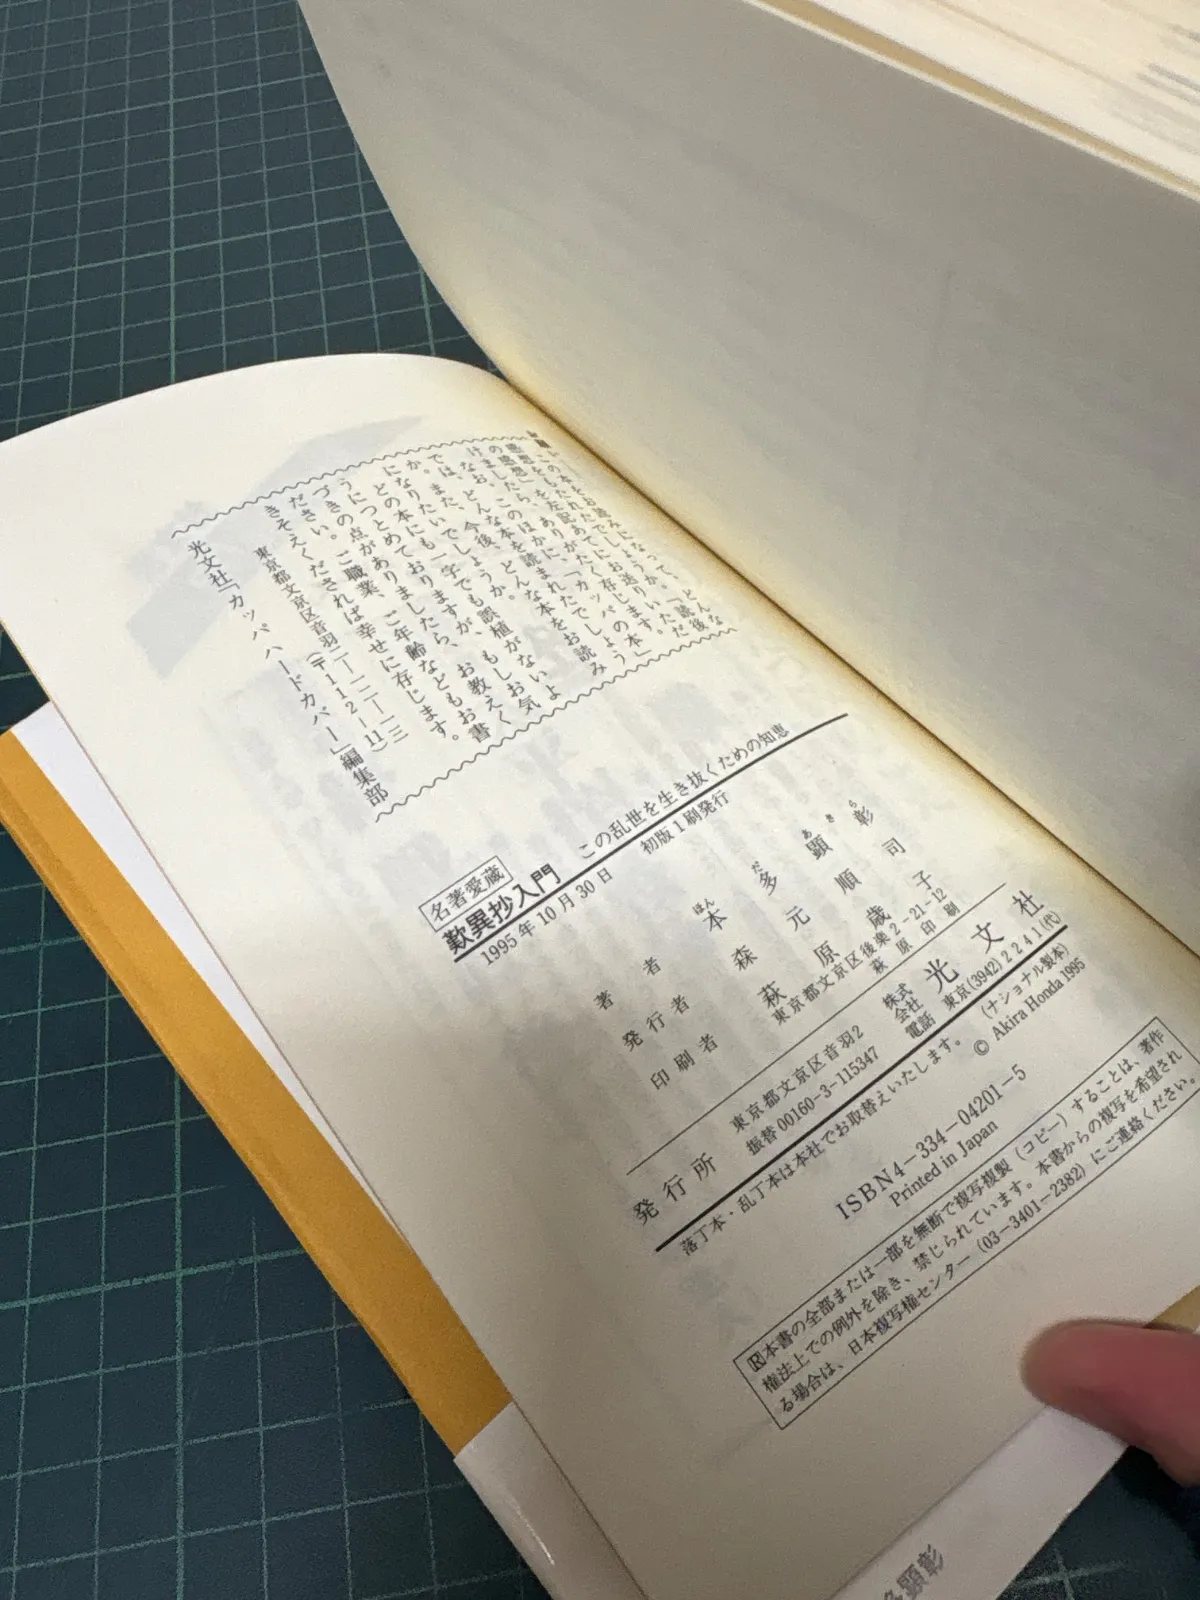 この本をお読みになって、どんな
感想をもたれたでしょうか。「読後
の感想」を左記あてにお送りいただ
けましたら、ありがたく存じます。
なお、このほかに、「カッパの本」
では、どんな本を読まれたでしょう
か。また、今後、どんな本をお読み
になりたいでしょうか。
どの本にも一字でも誤植がないよ
うにつとめておりますが、もしお気
づきの点がありましたら、お教えく
ださい。ご職業、ご年齢などもお書
きそえくだされば幸せに存じます。
東京都文京区音羽二―一二―一三
(〒112-11)
光文社「カッパハードカバー」編集部
名著愛蔵
歎異抄入門 この乱世を生き抜くための知恵
1995年10月30日 初版1刷発行
著者 本多顕彰
ほん だ あき ら
発行者 森元順司
印刷者 萩原歳子
東京都文京区後楽2-21-12
萩原印刷
発行所 東京都文京区音羽2 株式会社 光文社
振替00160-3-115347 電話 東京(3942)2241(代)
落丁本・乱丁本は本社でお取替えいたします。(ナショナル製本)
© Akira Honda 1995
ISBN4-334-04201-5
Printed in Japan
Ⓡ本書の全部または一部を無断で複写複製(コピー)することは、著作
権法上での例外を除き、禁じられています。本書からの複写を希望され
る場合は、日本複写権センター(03-3401-2382)にご連絡ください。
顕彰